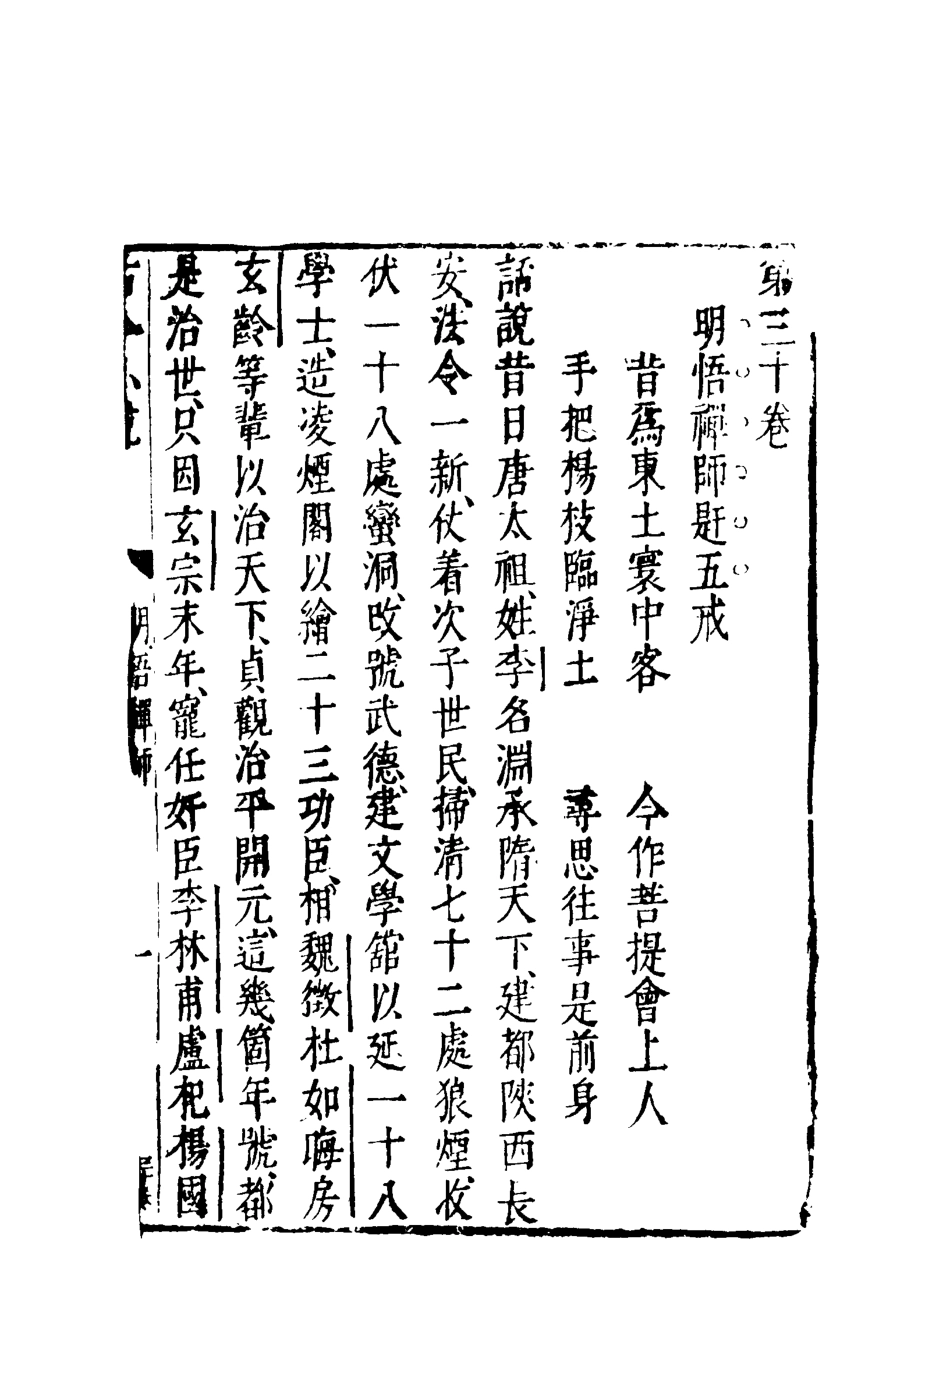 第三十卷
明悟禪師趕五戒
昔爲東土寰中客　今作菩提會上人
手把楊枝臨淨土　尋思往事是前身
話說昔日唐太祖、姓李名淵承隋天下、建都陝西長
安、法令一新、仗着次子世民、掃清七十二處狼煙、收
伏一十八處蠻洞、改號武德、建文學舘以延一十八
學士、造凌煙閣以繪二十三功臣、相魏徵杜如晦房
玄齡等輩以治天下、貞觀治平開元、這幾箇年號、都
是治世、只因玄宗末年、寵任奸臣李林甫盧杞楊國
明悟禪師
一